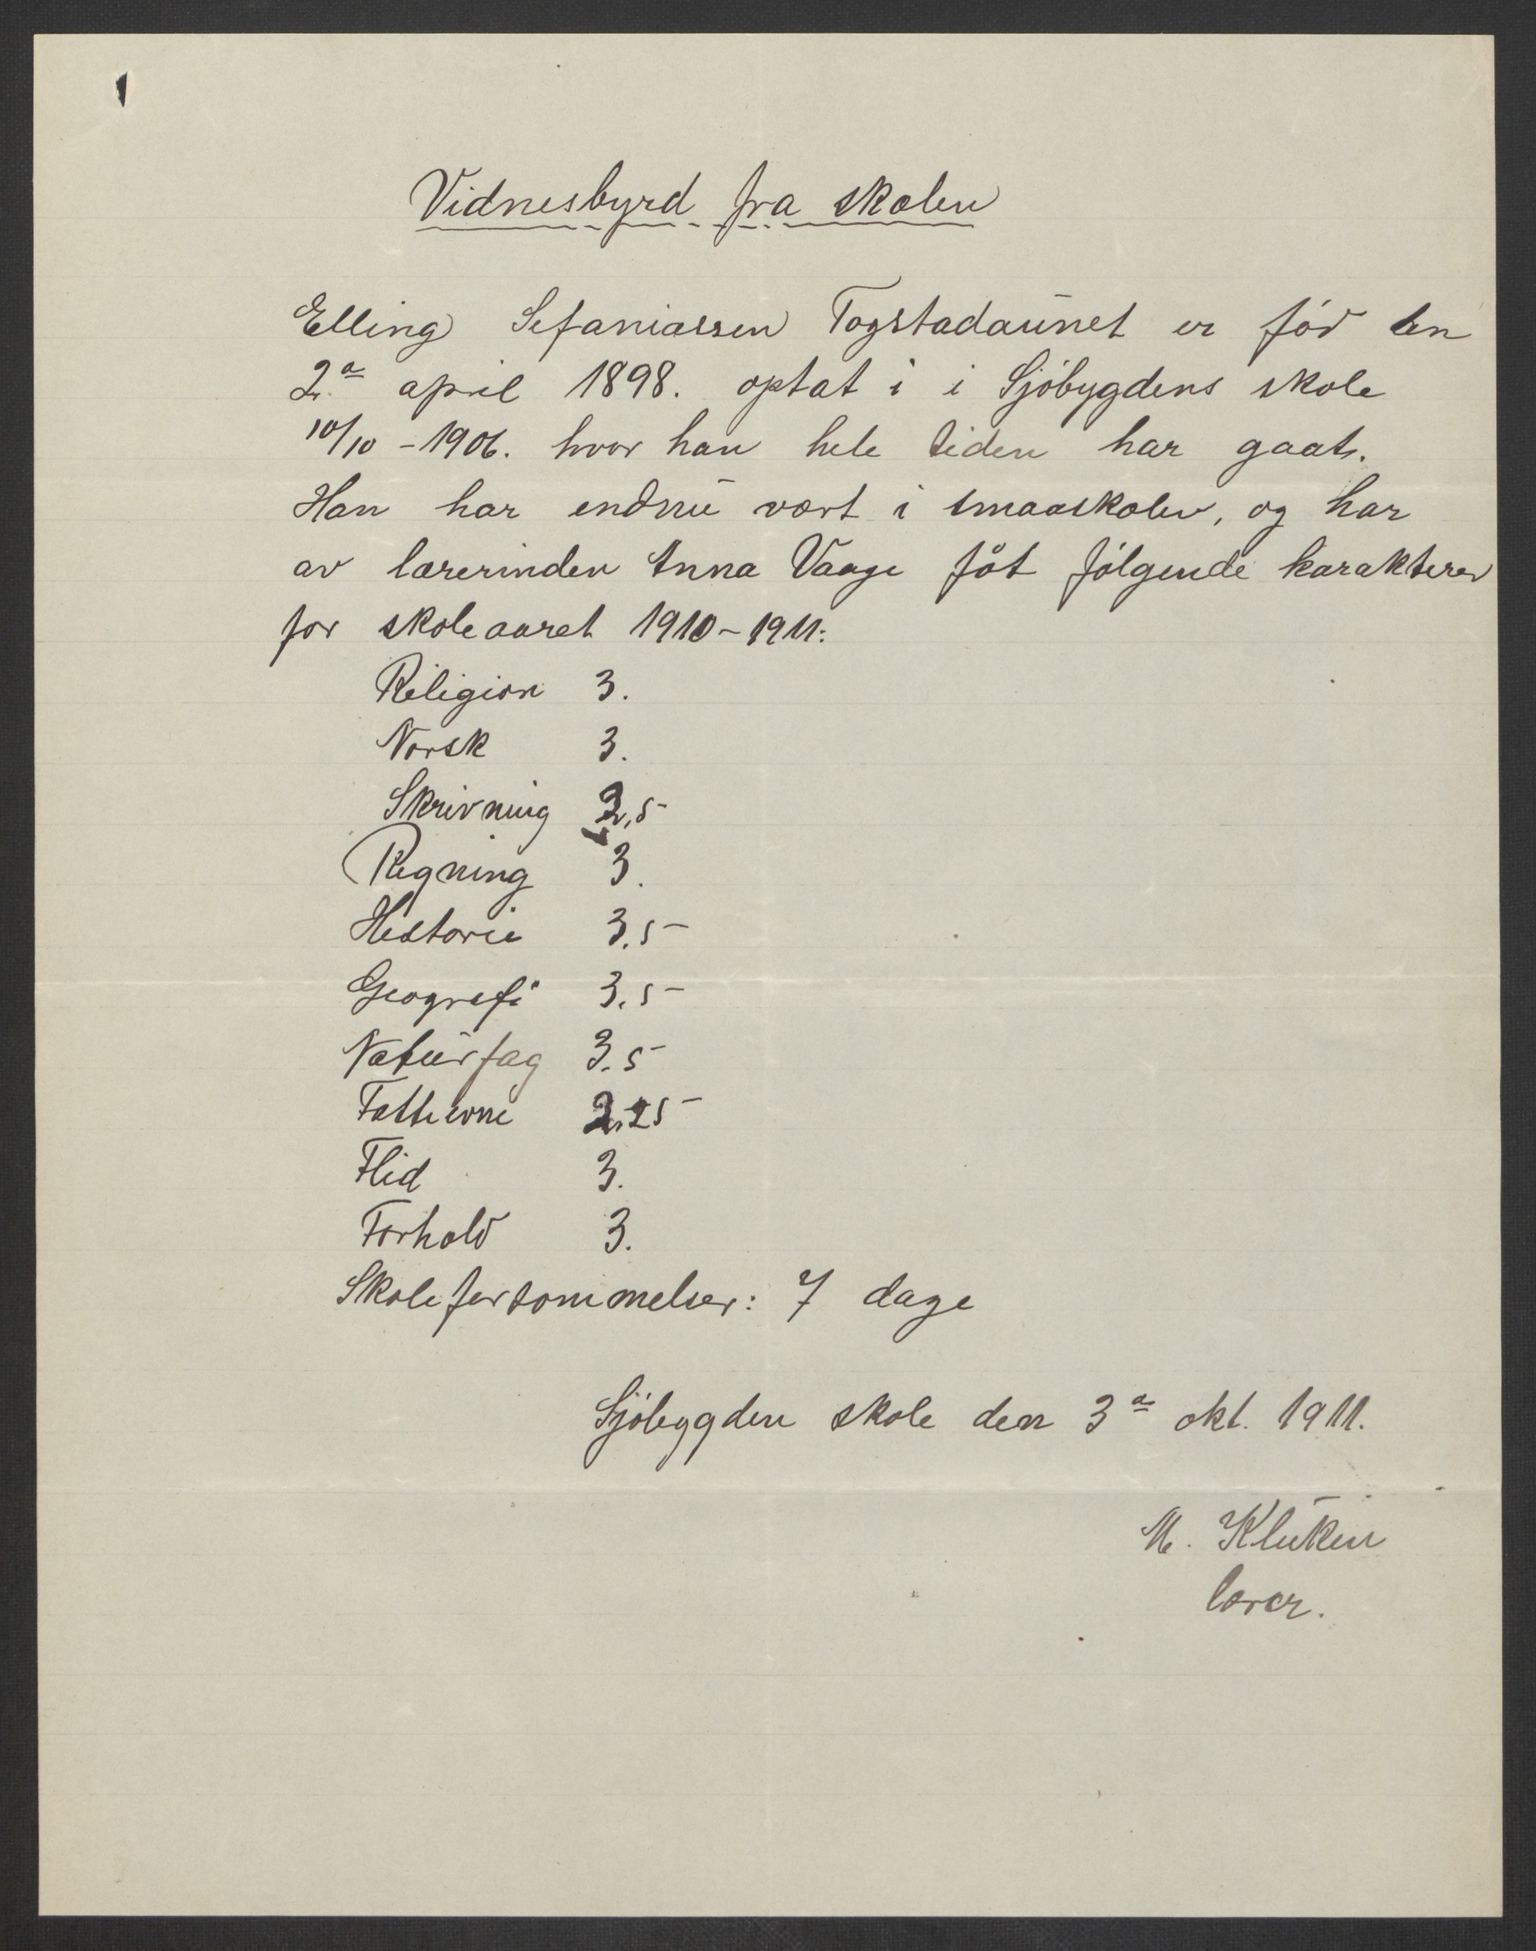 Vidnesbyrd fra skolen
Elling Sefaniassen Togstadaunet er fød den
2n april 1898. optat i i Sjöbygdens skole
10/10 - 1906. hvor han hele tiden har gaat.
Han har endnu vært i smaaskolen, og har
av lærerinden Anna Vaage fåt følgende karakterer
for skoleaaret 1910 - 1911:
Religion 3.
Norsk 3.
Skrivning 2,5
Regning 3.
Historie 3.5
Geografi 3.5
Naturfag 3.5
Fatteevne 2,25
Flid 3.
Forhold 3.
Skoleforsømmelser: 7 dage
Sjöbygden skole den 3n okt. 1911.
M. Kluken
lærer.